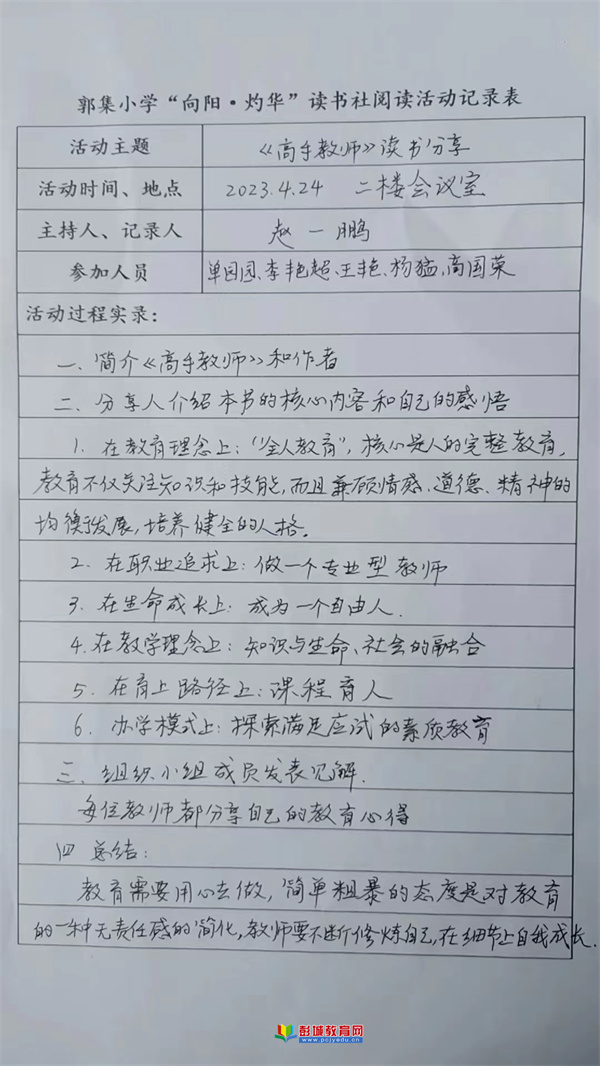 郭集小学“向阳·灼华”读书社阅读活动记录表
活动主题 《高手教师》读书分享
活动时间、地点 2023.4.24 二楼会议室
主持人、记录人 赵一鹏
参加人员 单园园、李艳超、王艳、杨猛、高国荣
活动过程实录：
一、简介《高手教师》和作者
二、分享人介绍本书的核心内容和自己的感悟
1. 在教育理念上：“全人教育”，核心是人的完整教育，
教育不仅关注知识和技能，而且兼顾情感、道德、精神的
均衡发展，培养健全的人格。
2. 在职业追求上：做一个专业型教师
3. 在生命成长上：成为一个自由人.
4. 在教学理念上：知识与生命、社会的融合
5. 在育上路径上：课程育人
6. 办学模式上：探索满足应试的素质教育
三、组织小组成员发表见解.
每位教师都分享自己的教育心得
四 总结：
教育需要用心去做，简单粗暴的态度是对教育
的一种无责任感的简化，教师要不断修炼自己，在细节上自我成长.
彭城教育网
www.pcjyedu.cn